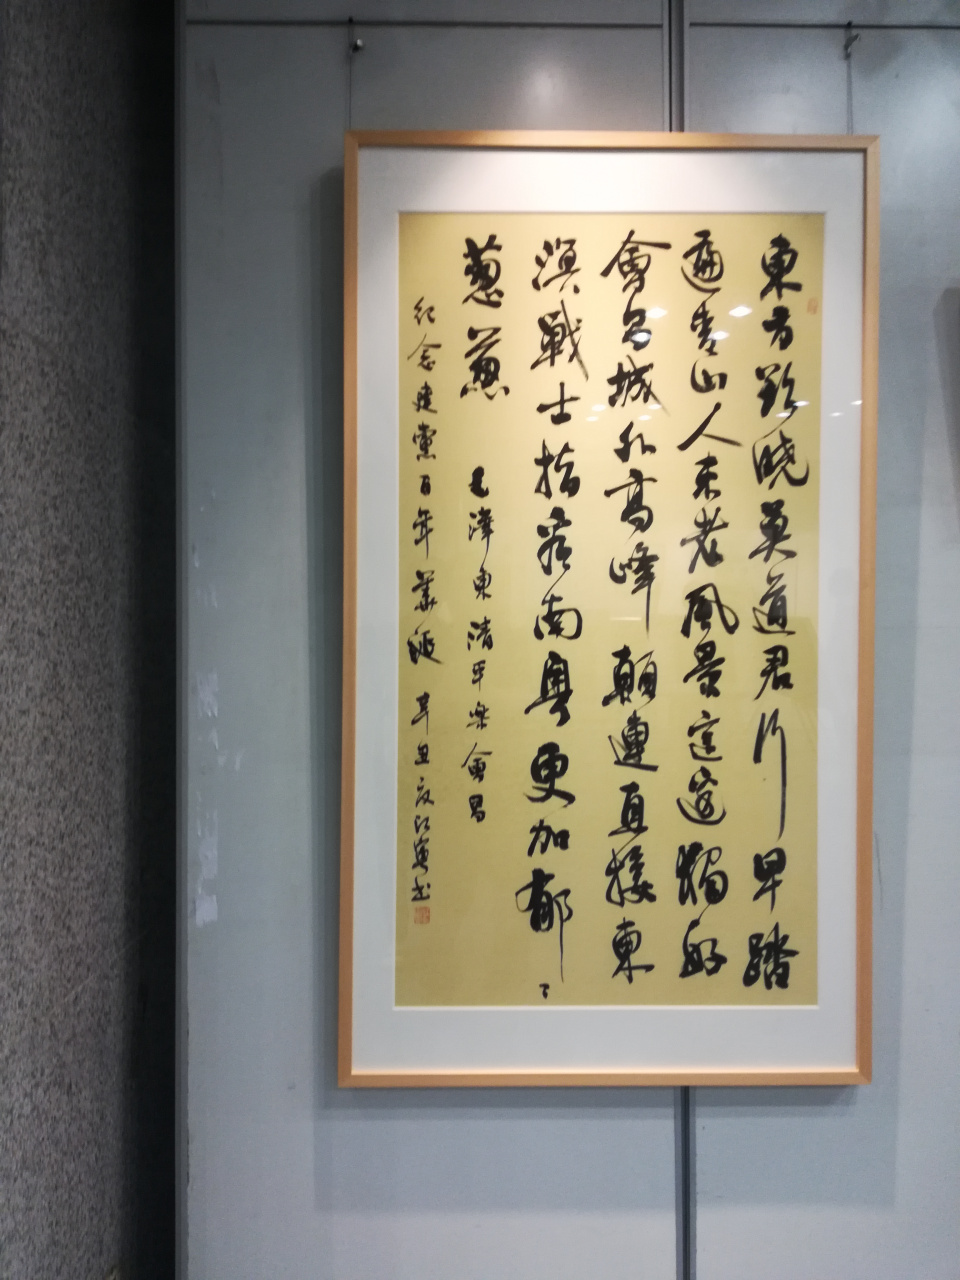 東方欲曉莫道君行早踏
遍青山人未老風景這邊獨好
會昌城外高峰顛連直接東
溟戰士指看南粵更加郁〻
蔥蔥 毛澤東清平樂會昌
紀念建黨百年 辛丑夏江 書